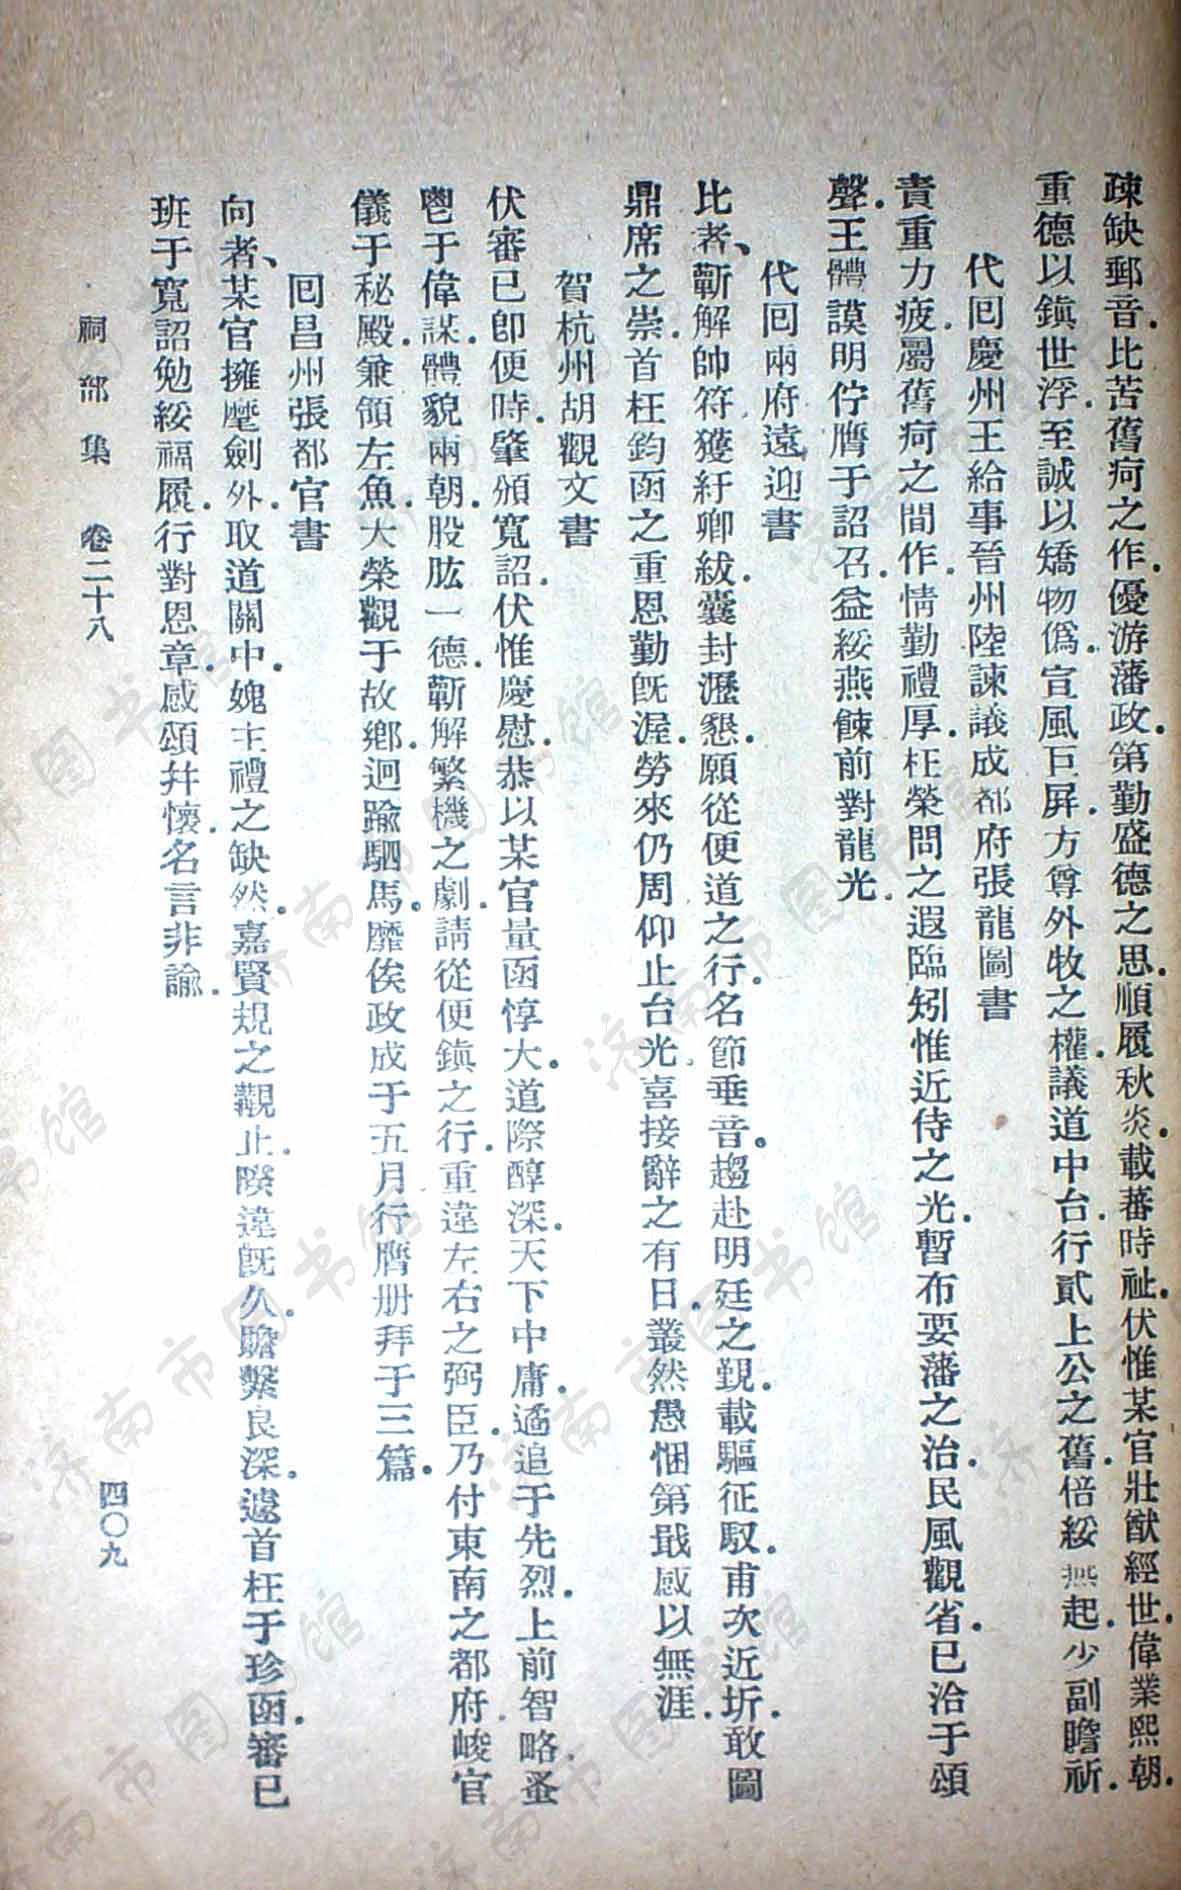 疎缺郵音比苦舊疴之作優游藩政第勤盛德之思順履秋炎載蕃時祉伏惟某官壯猷經世偉業熙朝
重德以鎭世浮至誠以矯物僞宣風巨屏方尊外牧之權議道中台行貳上公之舊倍綏燕起少副瞻祈
代囘慶州王給事晉州陸諫議成都府張龍圖書
責重力疲屬舊疴之間作情勤禮厚枉榮問之遐臨矧惟近侍之光暫布要藩之治民風觀省已洽于頌
聲王體謨明佇膺于詔召益綏燕餗前對龍光
代囘兩府遠迎書
比者蘄解帥符獲紆鄉紱囊封瀝懇願從便道之行名節垂音趨赴明廷之覲載驅征馭甫次近圻敢圖
鼎席之崇首枉鈞函之重恩勤旣渥勞來仍周仰止台光喜接辭之有日叢然愚悃第戢感以無涯
賀杭州胡觀文書
伏審已卽便時肇頒寬詔伏惟慶慰恭以某官量函惇大道際醇深天下中庸遹追于先烈上前智略蚤
鬯于偉謀體貌兩朝股肱一德蘄解繁機之劇請從便鎭之行重違左右之弼臣乃付東南之都府峻官
儀于秘殿兼領左魚大榮觀于故鄉迴踰駟馬靡俟政成于五月行膺册拜于三篇
囘昌州張都官書
向者某官擁麾劍外取道關中媿主禮之缺然嘉賢規之覯止睽違旣久瞻繫良深遽首枉于珍函審已
班于寬詔勉綏福履行對恩章感頌幷懷名言非諭
祠部集　卷二十八　四〇九
济南市图书馆